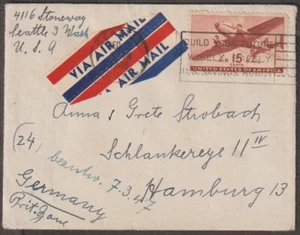 4116 Stoneway
Seattle 3 Wash
U. S. A
VIA/AIR MAIL
AIR MAIL
BUILD YOUR FUTURE
WISELY SAFELY
U.S. SAVINGS BONDS
15¢
UNITED STATES OF AMERICA
Anna & Grete Strobach
Schlankereye 11 IV
(24) Hamburg 13
beantw. 7.3.47
Germany
Brit. Zone